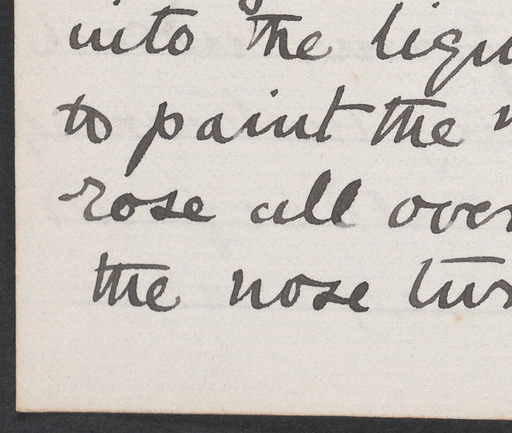 into the liqu
to paint the
rose all over
the nose